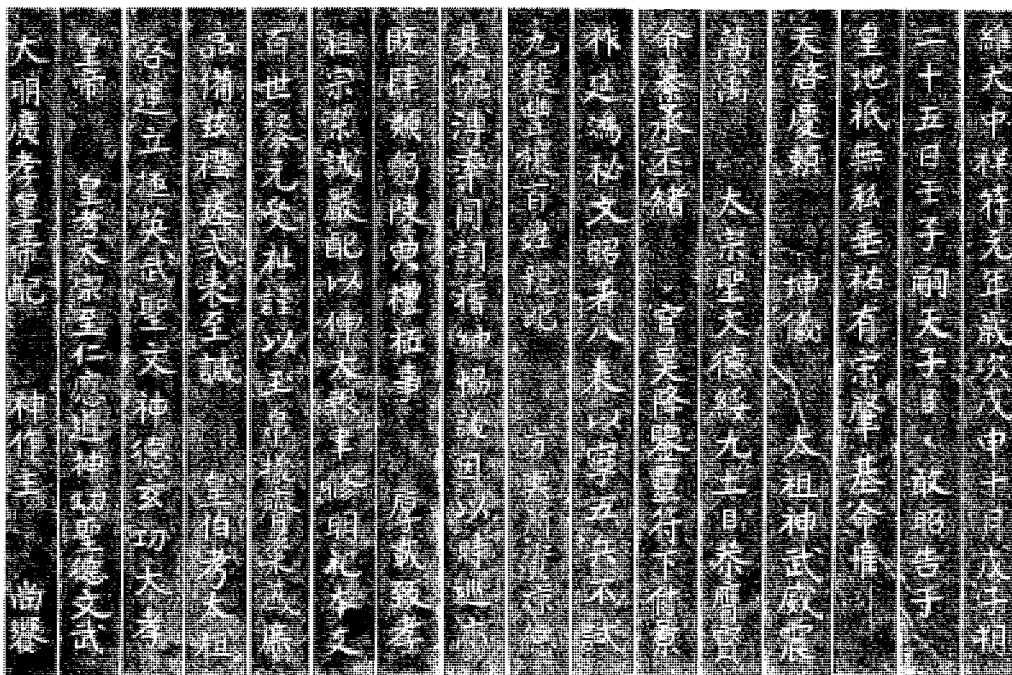 維大中祥符元年歲次戊申十月戊子朔
二十五日壬子嗣天子臣 敢昭告于
皇地祇無私垂祐有宋肇基命惟
天啓慶賴 坤儀 太祖神武威震
萬寓 太宗聖文德綏九土臣恭膺寶
命纂承丕緒 穹昊降 靈符下付景
祚延鴻祕文昭著八表以寧五兵不試
九穀豐穰百姓親比 方輿 涼德
是愧溥率同詞搢紳協議因以時巡亦
既肆類躬陳典禮祗事 厚載致孝
祖宗潔誠嚴配以伸大報聿修明祀本支
百世黎元受祉謹以玉帛犧牲粢盛庶
品備茲禋瘞式表至誠 皇伯考太祖
啓運立極英武聖文神德玄功大孝
皇帝 皇考太宗至仁應道神功聖德文武
大明廣孝皇帝配 神作主 尚饗